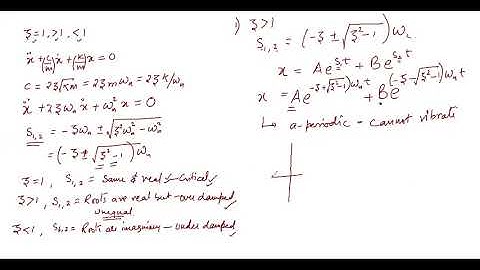 ξ = 1, > 1, < 1
ẍ + (c/m)ẋ + (k/m)x = 0
c = 2ξ√km = 2ξmωn = 2ξk/ωn
ẍ + 2ξωnẋ + ωn²x = 0
S1,2 = -ξωn ± √ξ²ωn² - ωn²
= (-ξ ± √ξ²-1) ωn
ξ = 1, S1,2 = Same & real - Critical
ξ > 1, S1,2 = Roots are real but - over damped
unequal
ξ < 1, S1,2 = Roots are imaginary - under damped
1) ξ > 1
S1,2 = (-ξ ± √ξ²-1) ωn
x = Ae^S1t + Be^S2t
x = Ae^(-ξ+√ξ²-1)ωnt + Be^(-ξ-√ξ²-1)ωnt
↳ a-periodic - cannot vibrate